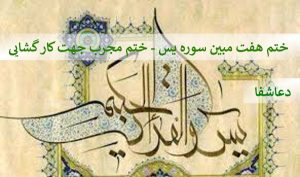 ختم هفت مبین سوره یس - ختم مجرب جهت کار گشایی
دعاشفا
یس والقرآن الحکیم